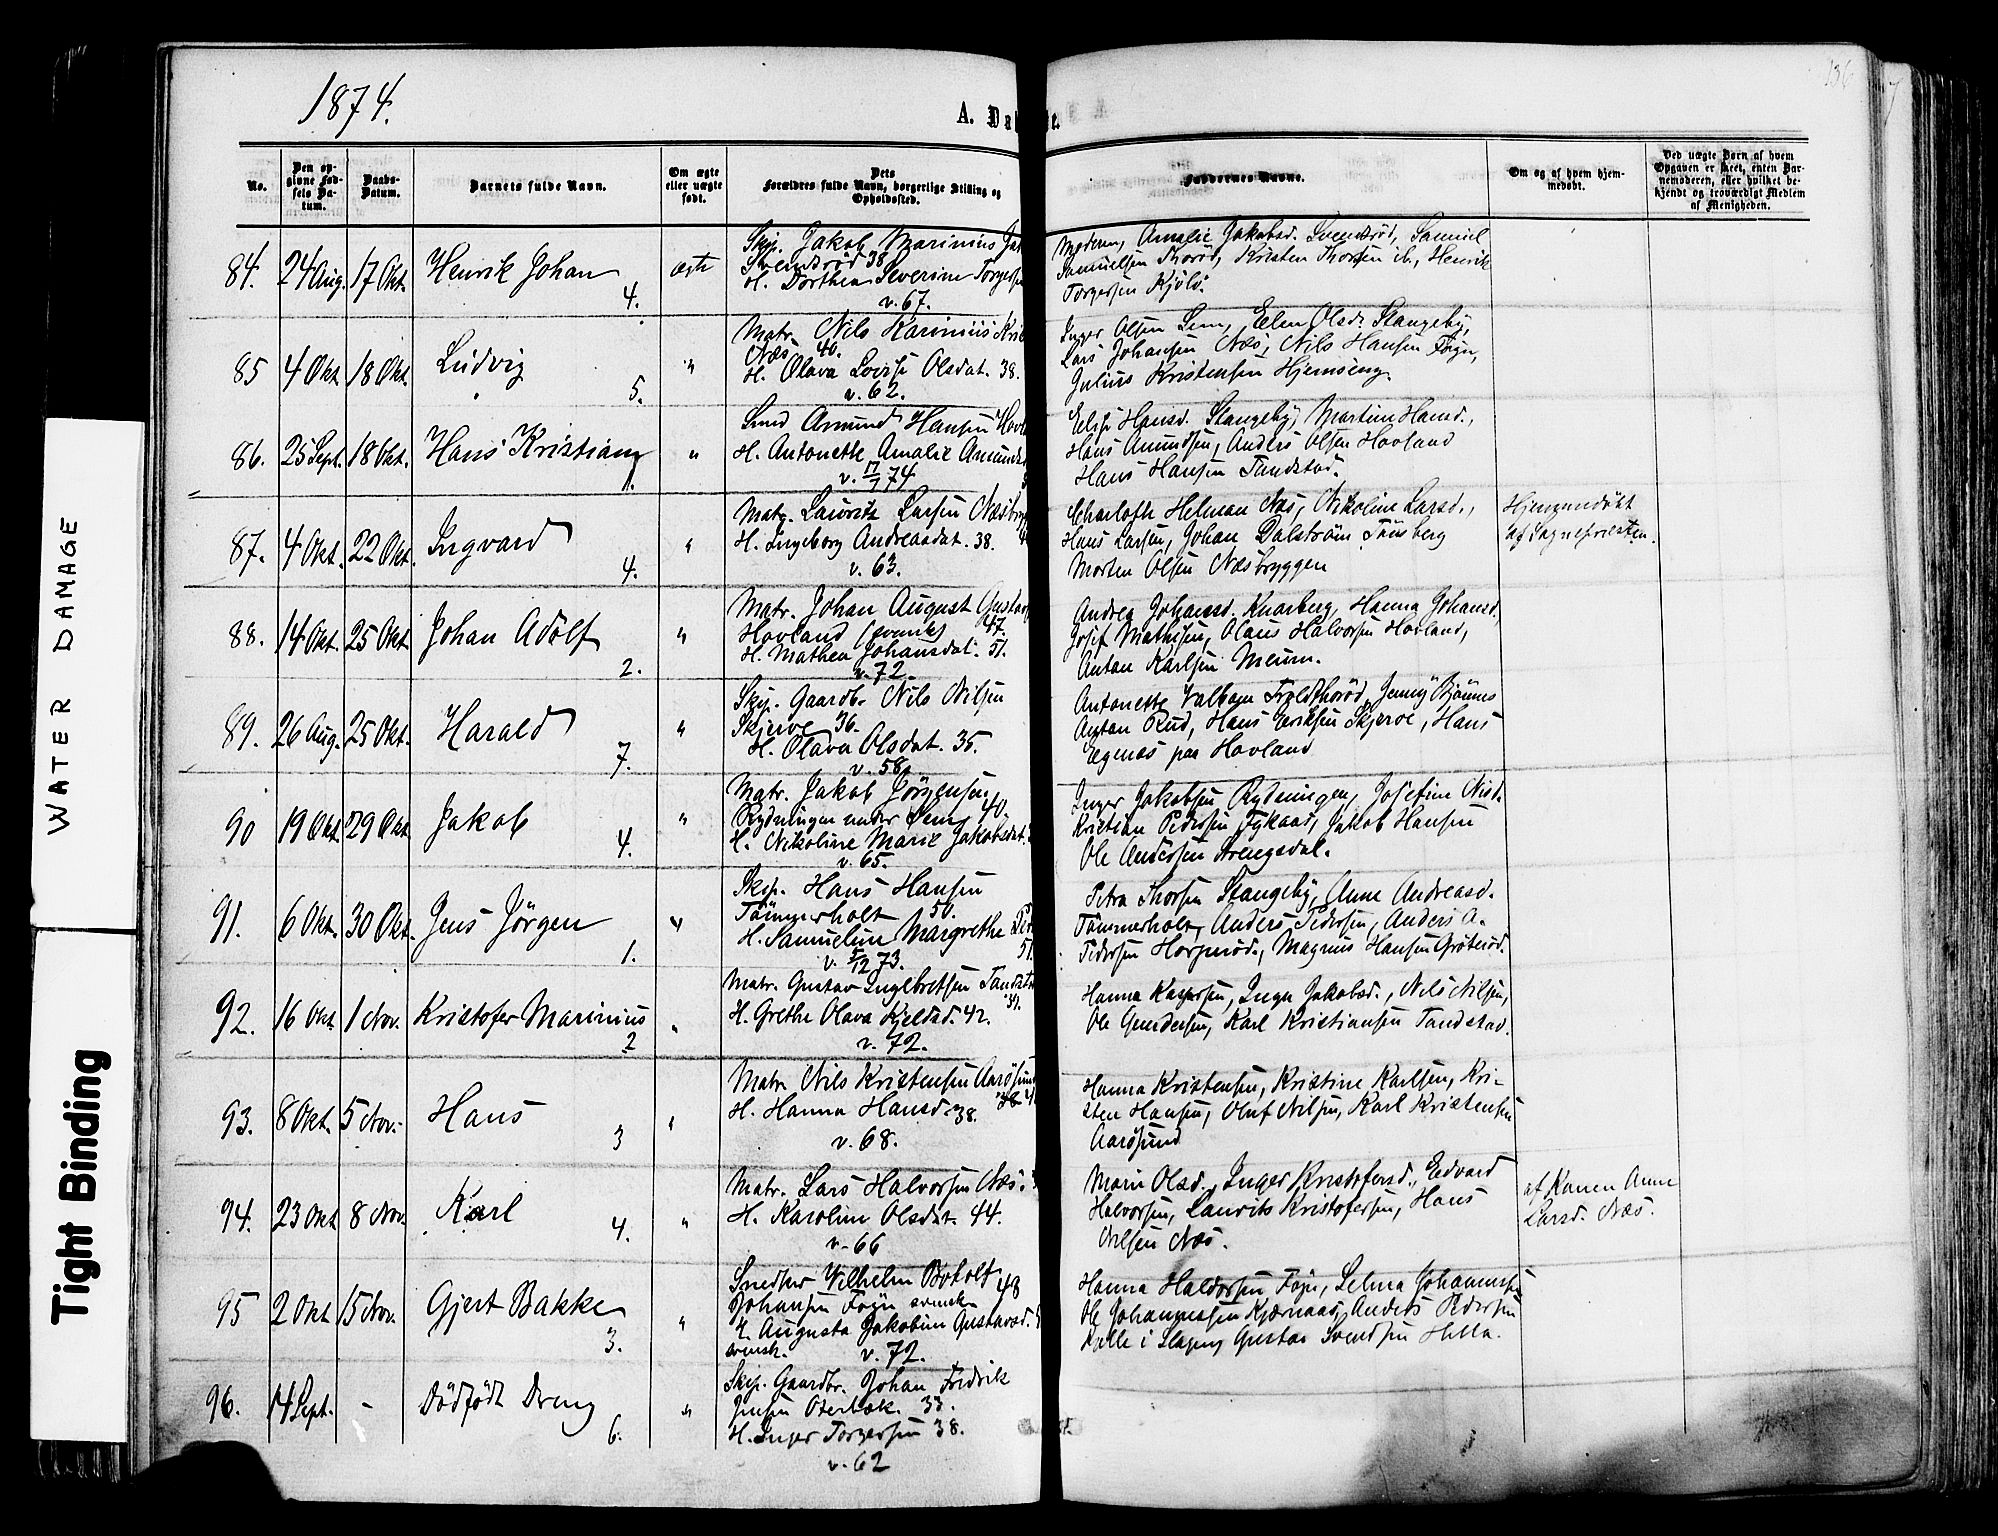 1874.
A. Da
136
WATER DAMAGE
Tight Binding
No.
Den op-
givne Fød-
sels Da-
tum.
Daabs-
Datum.
Barnets fulde Navn.
Om ægte
eller uægte
født.
Dets
Forældres fulde Navn, borgerlige Stilling og
Opholdssted.
Faddernes Navne.
Om og af hvem hjem-
medøbt.
Ved uægte Børn af hvem
Opgaven er skeet, enten Bar-
nemoderen, eller hvilket be-
kjendt og troværdigt Medlem
af Menigheden.
84. 24 Aug. 17 Okt. Henrik Johan 4. ægte
Skip. Jakob Marinius Jak
Svendsrød 38
H. Dorthea Severine Torgersen
v. 67.
Moderen, Amalie Jakobsd. Svendsrød, Samuel
Samuelsen Thorød, Kristen Thorsen ib., Henrik
Torgersen Kjølø.
85 4 Okt. 18 Okt. Ludvig 5. "
Matr. Nils Karinius Kris
Næs 40.
H. Olava Lovise Olsdat. 38.
v. 62.
Inger Olsen Sem, Elen Olsd. Stangeby,
Lars Johansen Næs, Nils Hansen Føyn,
Julius Kristensen Hjemseng.
86. 25 Sept. 18 Okt. Hans Kristian 1. "
Smed Amund Hansen Hovl
H. Antonette Amalie Amunds
v. 17/1 74
Elise Hansd. Stangeby, Martine Hansd.,
Hans Amundsen, Anders Olsen Hovland
Hans Hansen Tandstad.
87. 4 Okt. 22 Okt. Ingvard 4. "
Matr. Lauritz Larsen Næsbryg
H. Ingeborg Andreasdat. 38.
v. 63.
Charlotte Helman Næs, Nikoline Larsd.,
Hans Larsen, Johan Dalstrøm Tønsberg
Morten Olsen Næsbryggen
Hjemmedøbt
af Sognepresten.
88. 14 Okt. 25 Okt. Johan Adolf 2. "
Matr. Johan August Gustaf
Hovland (svensk) 47.
H. Mathea Johansdat. 51.
v. 72.
Andrea Johansd. Knarberg, Hanna Johansd.,
Josef Mathisen, Olaus Halvorsen Hovland,
Anton Karlsen Meum.
89. 26 Aug. 25 Okt. Harald 7. "
Skip. Gaardb. Nils Nilsen
Skjerve 36.
H. Olava Olsdat. 35.
v. 58.
Antonette Valbom Troldthorød, Jenny Bjønnes
Anton Rud, Hans Eriksen Skjerve, Hans
Egenes paa Hovland
90 19 Okt. 29 Okt. Jakob 4. "
Matr. Jakob Jørgensen
Rydningen under Sem 40.
H. Nikoline Marie Jakobsdat.
v. 65.
Inger Jakobsen Rydningen, Josefine Nisd.
Kristian Pedersen Tykaas, Jakob Hansen
Ole Andersen Strengsdal.
91. 6 Okt. 30 Okt. Jens Jørgen 1. "
Skip. Hans Hansen
Tømmerholt 50.
H. Samueline Margrethe Ped
v. 5/12 73. 51.
Petra Thorsen Stangeby, Anne Andreasd.
Tømmerholt, Anders Pedersen, Anders A.
Pedersen Horperød, Magnus Hansen Grøterød.
92. 16 Okt. 1 Nov. Kristofer Marinius 2 "
Matr. Gustav Inglbretsen Tandsta
H. Grethe Olava Kjeldsd. 42.
v. 72.
Hanna Kaspersen, Inger Jakobsd., Nils Nilsen,
Ole Gundersen, Karl Kristiansen Tandstad.
93. 8 Okt. 5 Nov. Hans 3 "
Matr. Nils Kristensen Aarøsund
H. Hanna Hansd. 38.
v. 68.
Hanna Kristensen, Kristine Karlsen, Kri-
sten Hansen, Oluf Nilsen, Karl Kristensen
Aarøsund
94. 23 Okt. 8 Nov. Karl 4. "
Matr. Lars Halvorsen Næs.
H. Karoline Olsdat. 44.
v. 66
Marie Olsd., Inger Kristofersd., Edvard
Halvorsen, Laurits Kristofersen, Hans
Nilsen Næs.
af Konen Anne
Larsd. Næs.
95 2 Okt. 15 Nov. Gjert Bakke 3. "
Snedker Vilhelm Botolf 48
Johansen Føyn svensk
H. Augusta Jakobine Gustavsd.
svensk. v. 72.
Hanna Haldorsen Føyn, Selma Johannesen
Ole Johannessen Kjærnaas, Anders Pedersen
Rolle i Slagen, Gustav Svendsen Hella.
96. 14 Sept. - Dødfødt Dreng 6. "
Skip. Gaardbr. Johan Fredrik
Jensen Oterbæk. 33.
H. Inger Torgersen 38.
v. 62